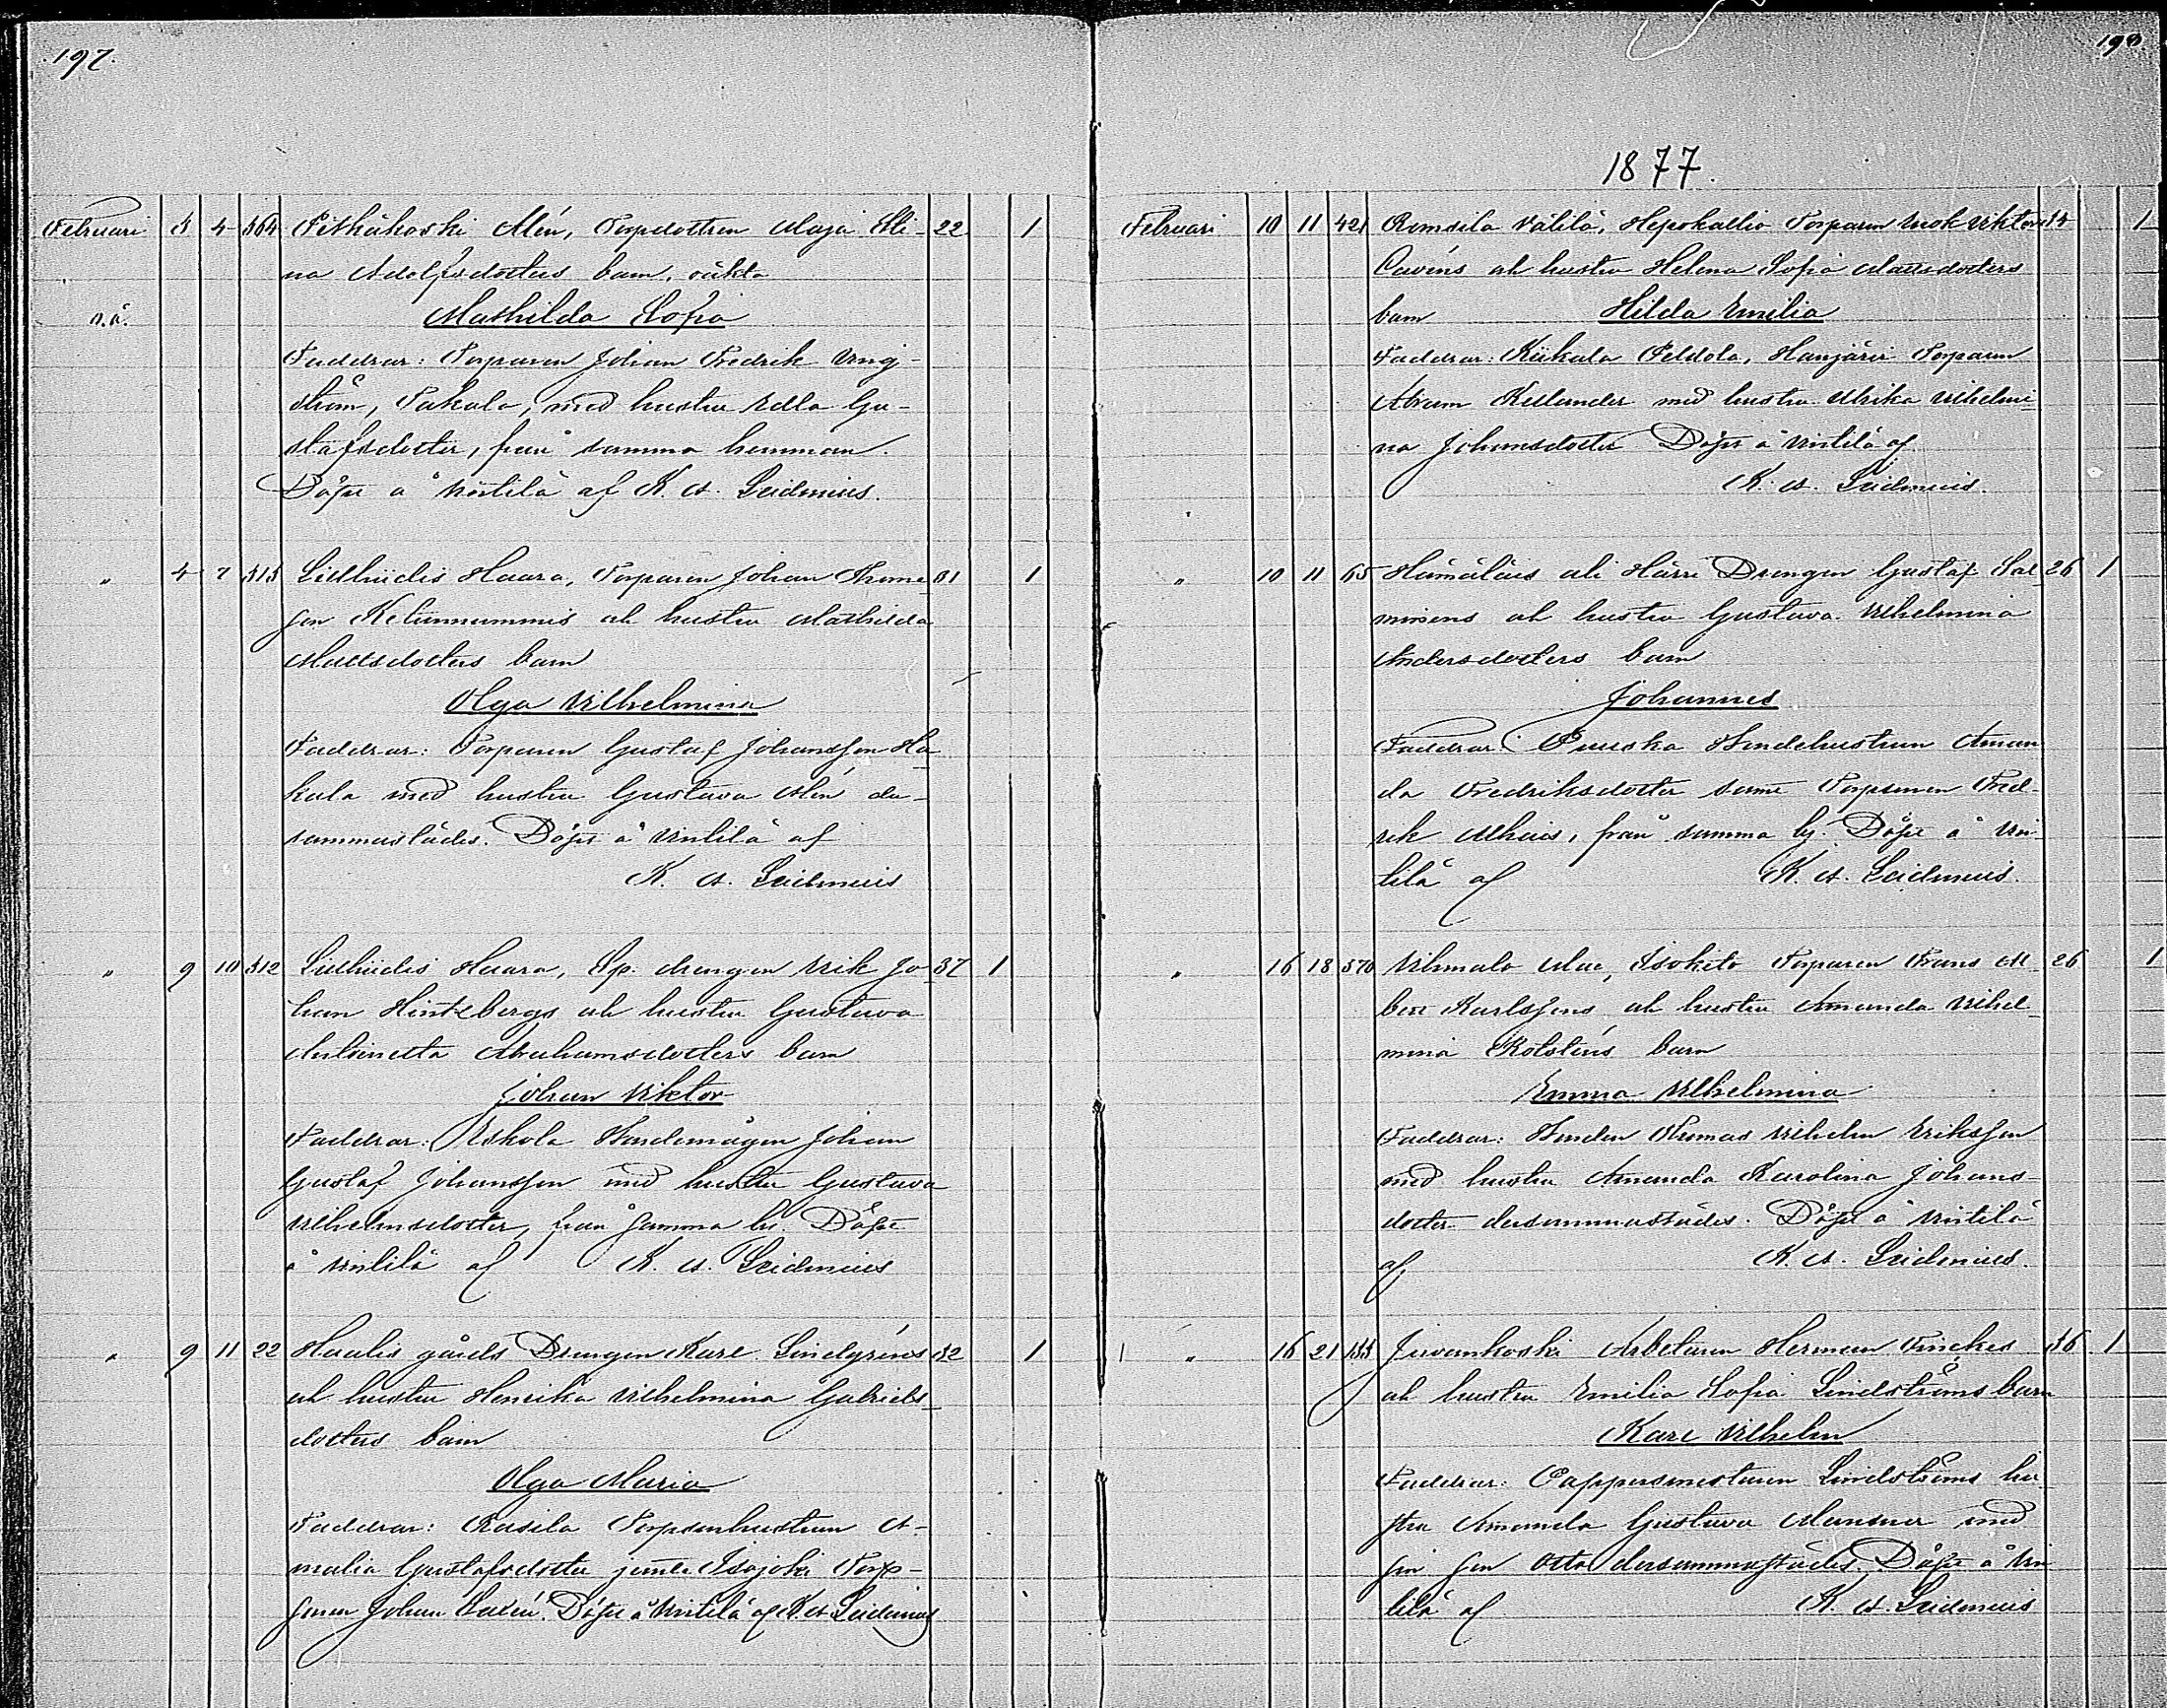 197.
Februari 3 4 364 Pitkäkoski Alén, Torpdottren Maja Eli- 22 1
na Adolfsdotters barn, oäkta
o.ä. Mathilda Sofia
Faddrar: Torparen Johan Fredrik Ling-
ström, Takala, med hustru Ulla Gu-
stafsdotter, från samma hemman.
Döpt å Vintilä af K. A. Leidenius.
" 4 7 313 Liedhiidis Haara, Torparen Johan Thoms 31 1
son Ketunnummis och hustru Mathilda
Mattsdotters barn
Olga Vilhelmina
Faddrar: Torparen Gustaf Johansson Ha
kala med hustru Gustava Alén der-
sammastädes. Döpt å Vintilä af
K. A. Leidenius
" 9 10 312 Liedhiidis Haara, Sp. drengen Erik Jo 37 1
han Hintzbergs och hustru Gustava
Antoinetta Abrahamsdotters barn
Johan Viktor
Faddrar: Eskola Bondemågen Johan
Gustaf Johansson med hustru Gustava
Vilhelmsdotter, från samma by. Döpt
å Vintilä af K. A. Leidenius
" 9 11 22 Haalis gårds Drengen Karl Lindgréns 32 1
och hustru Henrika Vilhelmina Gabriels-
dotters barn
Olga Maria
Faddrar: Rasila Torparhustrun A-
malia Gustafsdotter jemte Isojoki Torp-
sonen Johan Saxén. Döpt å Vintilä af K. A. Leidenius
198.
1877.
Februari 10 11 421 Romsila Välilä, Hepokallio Torparen Isak Viktors 34 1
Cavéns och hustru Helena Sofia Mattsdotters
barn Hilda Emilia
Faddrar: Kiikala Peldola, Hanjärvi Torparen
Abram Kellander med hustru Ulrika Vilhelmi
na Johansdotter Döpt å Vintilä af
K. A. Leidenius.
" 10 11 65 Hämäläis ali Härri Drengen Gustaf Sal 26 1
minens och hustru Gustava Vilhelmina
Andersdotters barn
Johannes
Faddrar: Puuska Bondehustrun Aman
da Fredriksdotter samt Torpsonen Fred-
rik Alhais, från samma by. Döpt å Vin
tilä af K. A. Leidenius.
" 16 18 370 Vihmalo Uue, Isokito Torparen Frans Al- 26 1
bert Karlssons och hustru Amanda Vilhel-
mina Rotsténs barn
Emma Vilhelmina
Faddrar: Bonden Thomas Vilhelm Eriksson
med hustru Amanda Karolina Johans-
dotter dersammastädes. Döpt å Vintilä
af K. A. Leidenius.
" 16 21 133 Juvankoski Arbetaren Herman Finckes 36 1
och hustru Emilia Sofia Lindströms barn
Karl Vilhelm
Faddrar: Pappersmestaren Lindströms hu
stru Amanda Gustava Mansner med
sin son Otto dersammastädes. Döpt å Vin
tilä af K. A. Leidenius